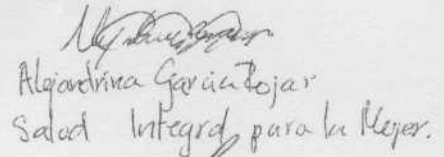 Alejandrina García Rojas
Salud Integral para la Mujer.